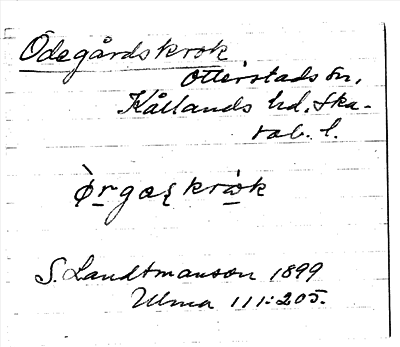 Ödegårdskrok
Otterstads sn,
Kållands hd, Ska-
rab. l.
ø̀rgaʂkròk
S. Landtmanson 1899
Ulma 111:205.